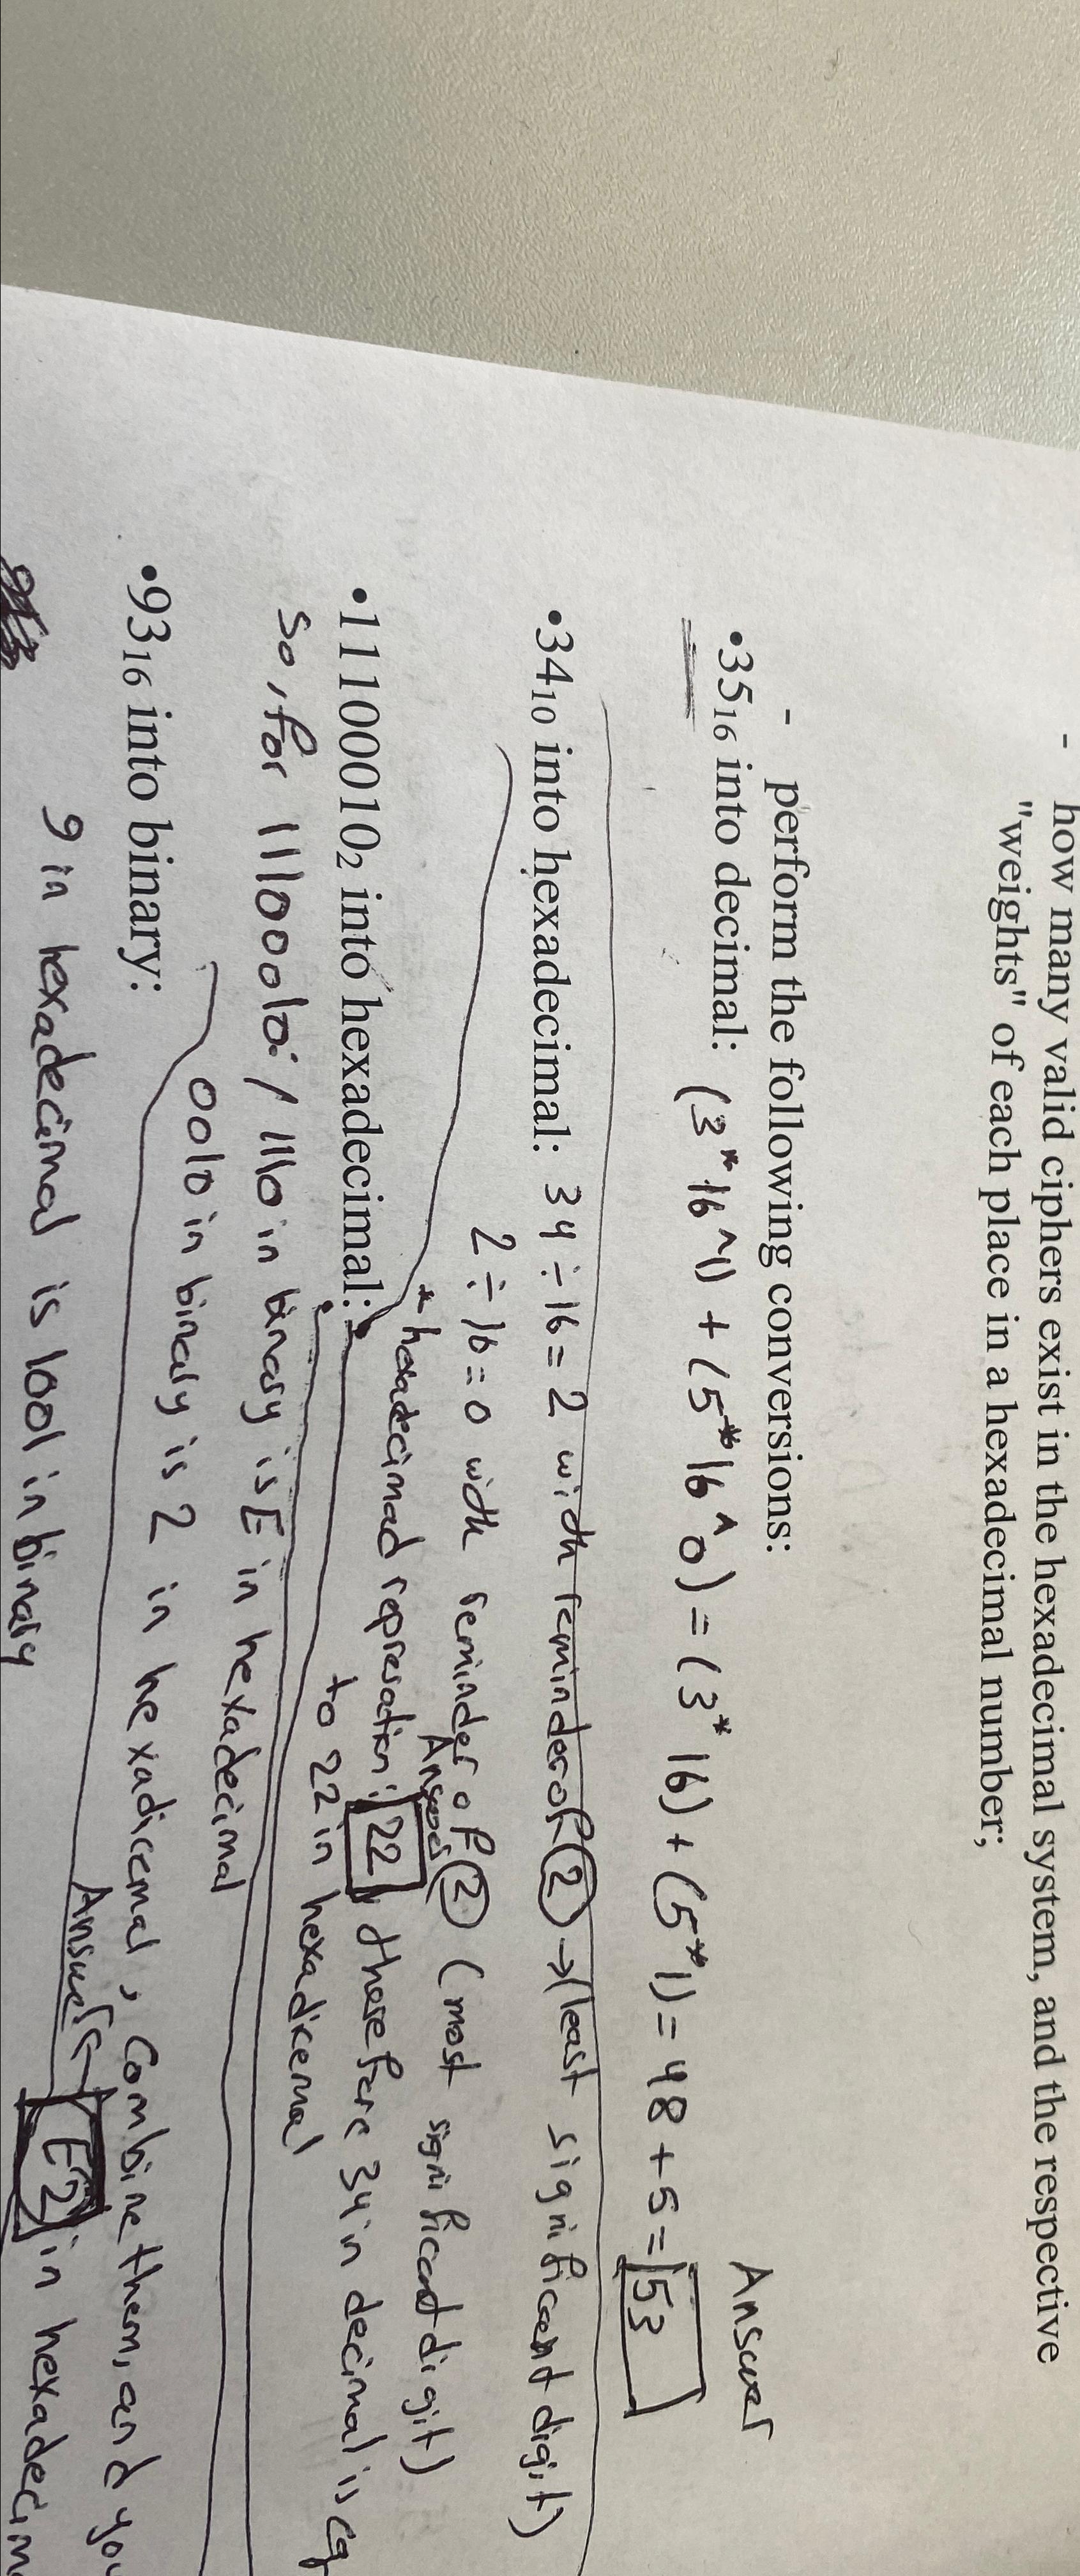 - how many valid ciphers exist in the hexadecimal system, and the respective
"weights" of each place in a hexadecimal number;
- perform the following conversions:
Answer
•35₁₆ into decimal: (3*16^1) + (5*16^0) = (3*16) + (5*1) = 48 + 5 = 53
•34₁₀ into hexadecimal: 34 ÷ 16 = 2 with reminder of 2 → (least significant digit)
2 ÷ 16 = 0 with reminder of 2 (most significant digit)
Answer
* hexadecimal represation: 22, therefore 34 in decimal is eq
•11100010₂ into hexadecimal: to 22 in hexadicemal
So, for 11100010: / 1110 in binary is E in hexadecimal
0010 in binary is 2 in hexadicemal, Combine them, and you
•93₁₆ into binary: Answer E2 in hexadecim
9 in hexadecimal is 1001 in binary